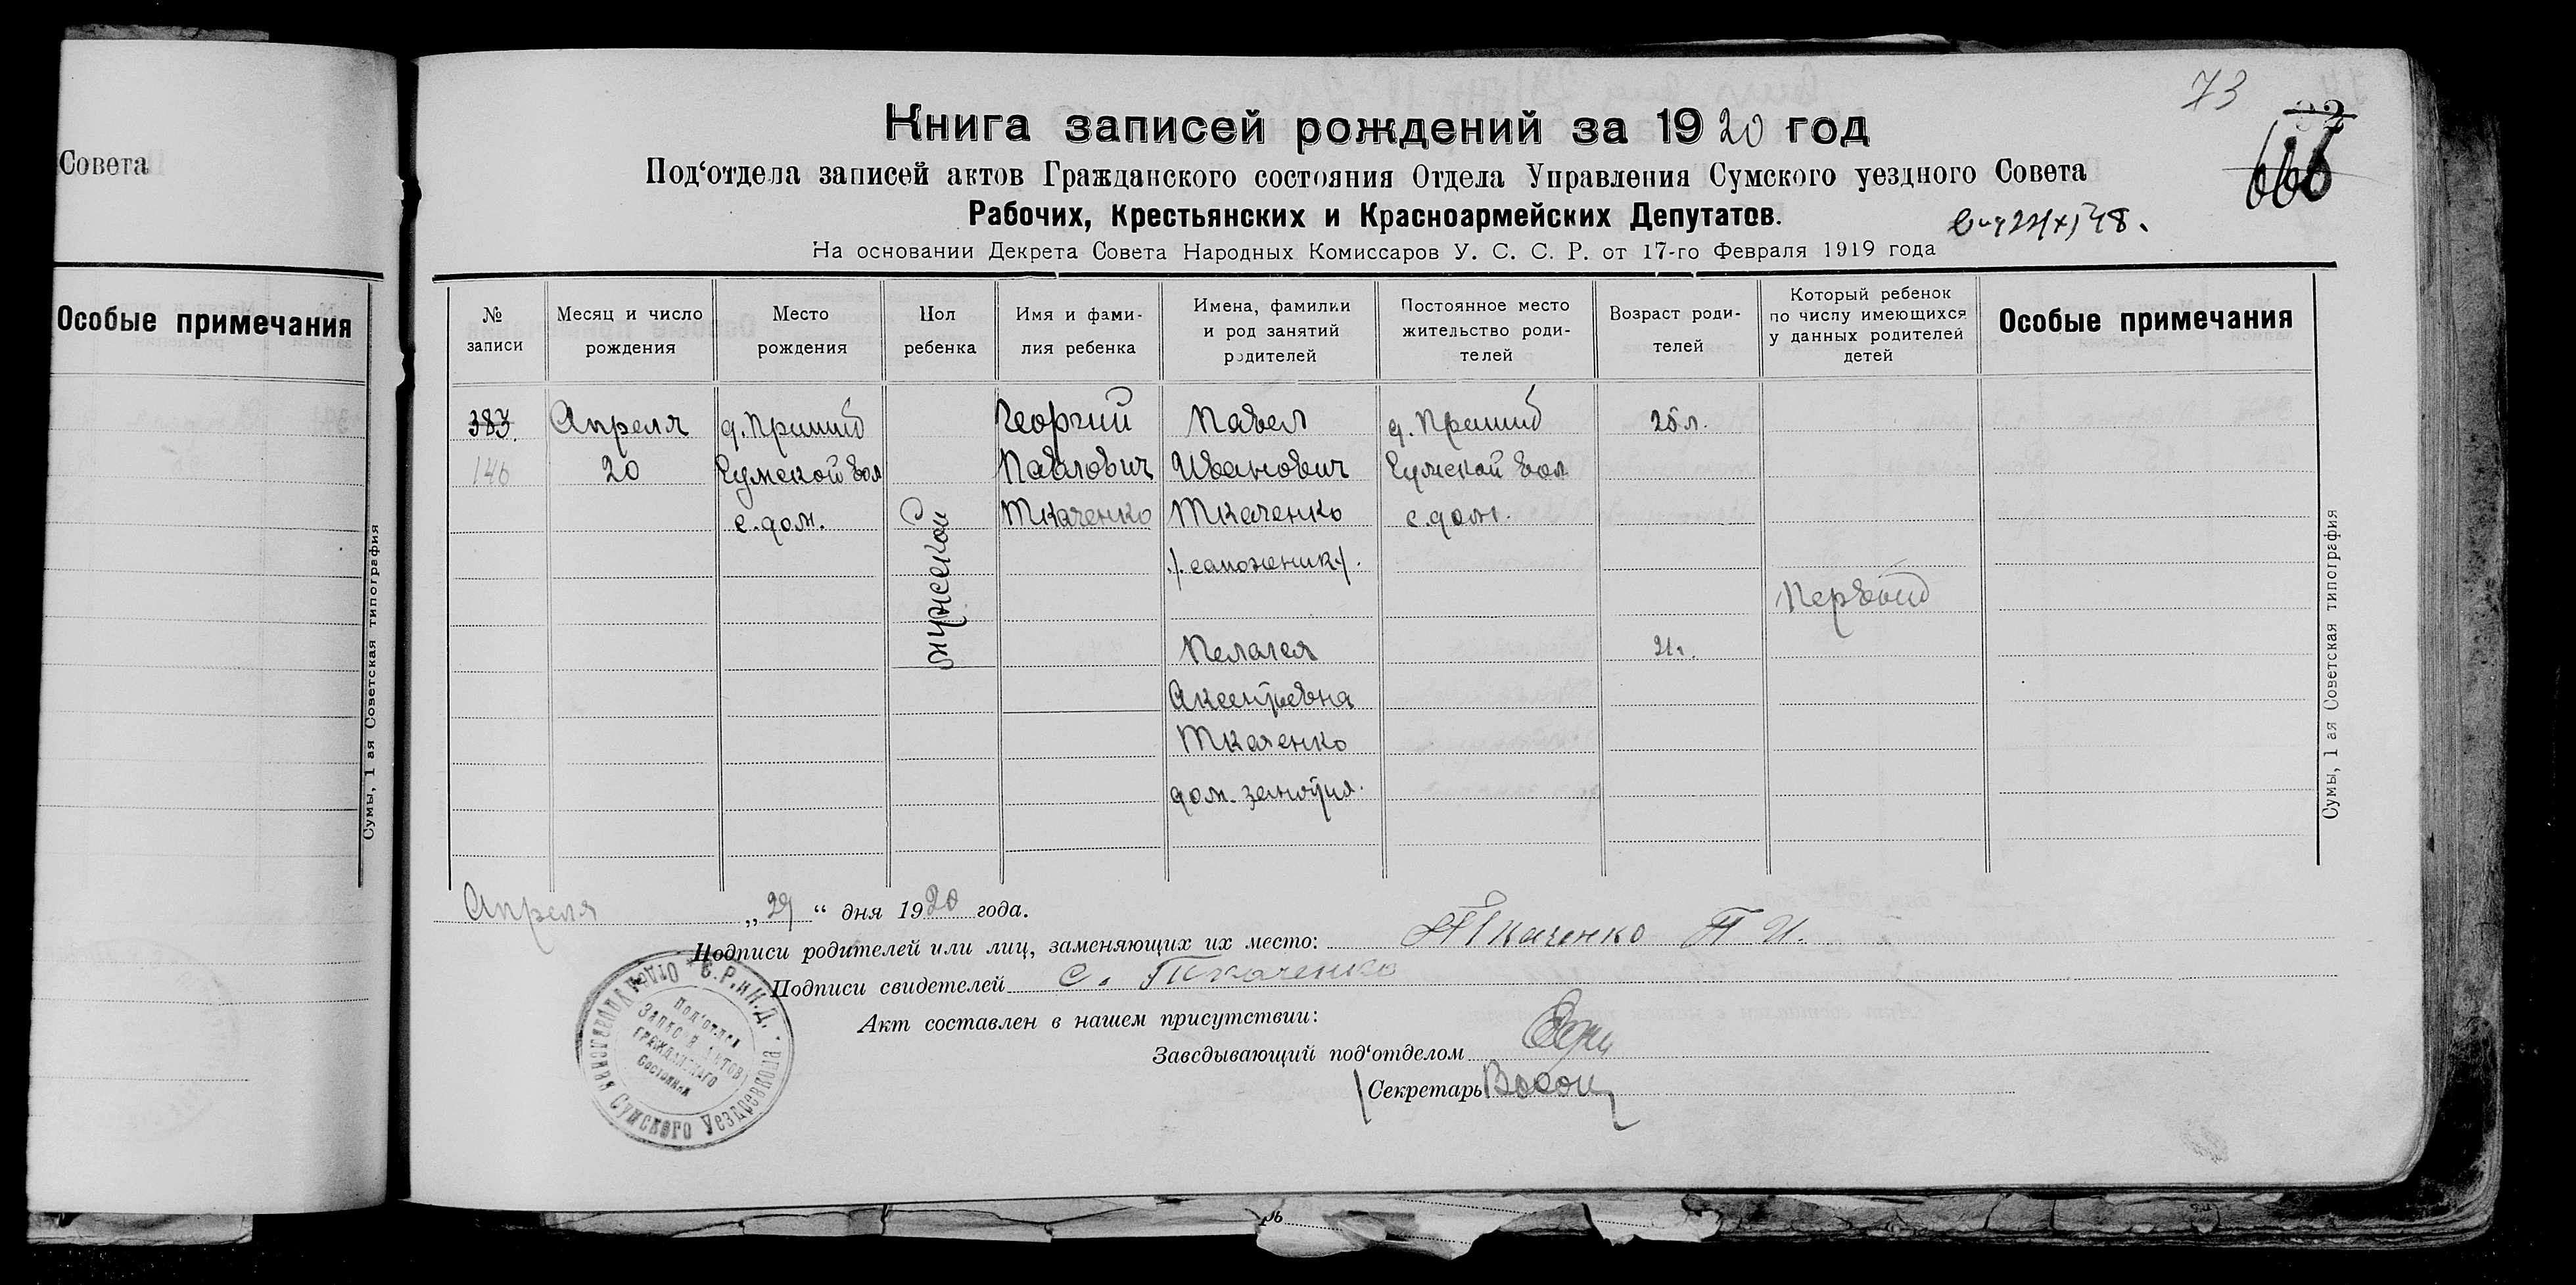 Совета
Особые примечания
Сумы, 1 ая Советская типография
73
32
666
Книга записей рождений за 1920 год
Под‘отдела записей актов Гражданского состояния Отдела Управления Сумского уездного Совета
Рабочих, Крестьянских и Красноармейских Депутатов.
На основании Декрета Совета Народных Комиссаров У. С. С. Р. от 17-го Февраля 1919 года
№ записи
Месяц и число рождения
Место рождения
Пол ребенка
Имя и фами-
лия ребенка
Имена, фамилии
и род занятий
родителей
Постоянное место
жительство роди-
телей
Возраст роди-
телей
Который ребенок
по числу имеющихся
у данных родителей
детей
Особые примечания
383.
146
Апреля
20
д. Пришиб
Сумской вол
с. дом.
мужеской
Георгий
Павлович
Ткаченко
Павел
Иванович
Ткаченко
/. сапожник /.
Пелагея
Аксентьевна
Ткаченко
дом. занятия.
д. Пришиб
Сумской вол
с. дом.
25 л.
21 г.
Первый
Сумы, 1 ая Советская типография
Апреля „29“ дня 1920 года.
Подписи родителей или лиц, заменяющих их место: Ткаченко П И.
Подписи свидетелей С. Ткаченко
Акт составлен в нашем присутствии:
Заведывающий под‘отделом
Секретарь
Под‘отдел
Записей Актов
Гражданского
Состояния
Сумского Уездревкома